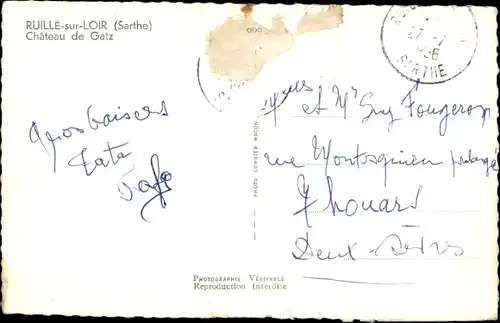 RUILLÉ-sur-LOIR (Sarthe)
Château de Gatz
Gros baisers
Tata
PHOTO COMBIER MACON
SARTHE
et Mr Guy Fougeron
rue Montesquieu prolongée
Thouars
Deux-Sèvres
Photographie Véritable
Reproduction Interdite